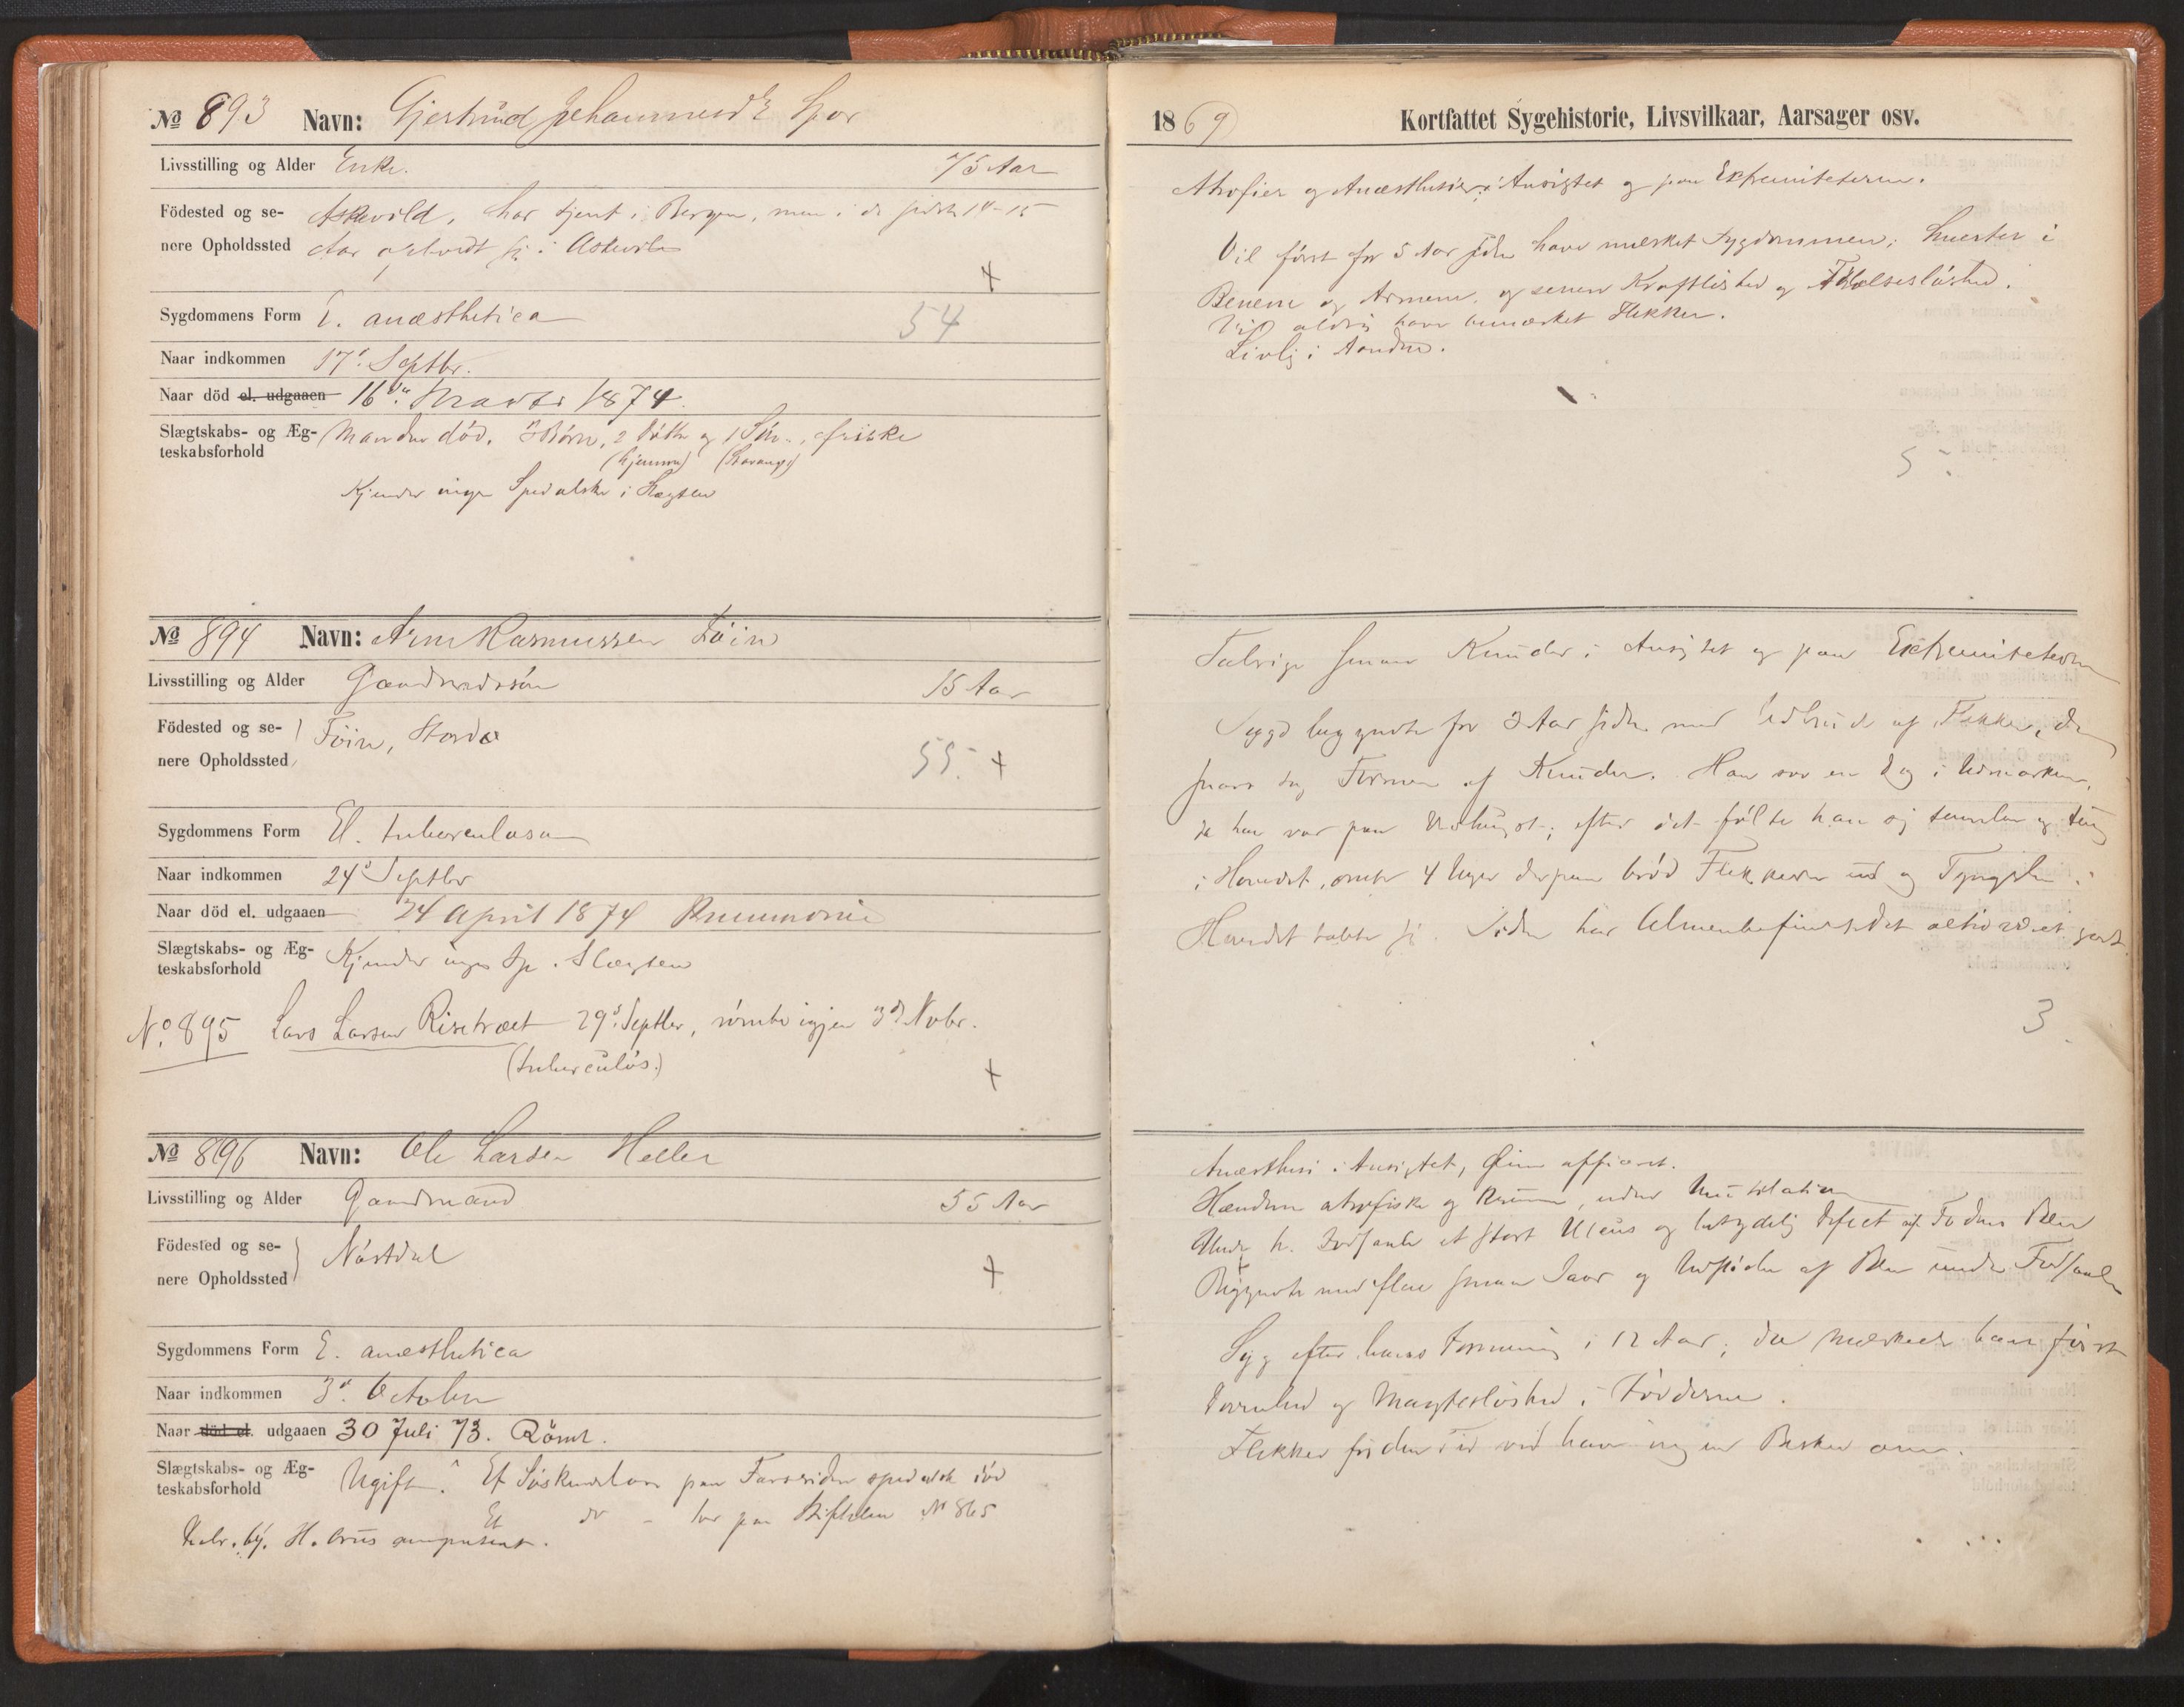 No 893 Navn: Gjertrud Johannesdr Spor
Livsstilling og Alder Enke. 75 Aar
Födested og se- Askevold, har tjent i Bergen, men i de sidste 14-15
nere Opholdssted Aar opholdt sig i Askevold
+
Sygdommens Form E. anæsthetica 54
Naar indkommen 17d Septbr.
Naar död el. udgaaen 16de Marts 1874
Slægtskabs- og Æg- Manden död. 3 Börn, 2 Döttre og 1 Sön, friske
teskabsforhold (hjemme) (Stavanger)
Kjender ingen Spedalske i Slægten
No 894 Navn: Arne Rasmussen Föin
Livsstilling og Alder Gaardmandssön 15 Aar
Födested og se- Föin, Stordö
nere Opholdssted 55. +
Sygdommens Form El. tuberculosa
Naar indkommen 24d Septbr
Naar död el. udgaaen 24 April 1874 Pneumonie
Slægtskabs- og Æg- Kjender ingen Sp. i Slægten
teskabsforhold
No. 895 Lars Larsen Risetræet 29d Septbr, römte igjen 3d Nvbr.
(tuberculös.)
+
No 896 Navn: Ole Larsen Heller
Livsstilling og Alder Gaardmand 55 Aar
Födested og se- Nöstdal
nere Opholdssted +
Sygdommens Form E. anæsthetica
Naar indkommen 3d October
Naar död el. udgaaen 30 Juli 73. Römt.
Slægtskabs- og Æg- Ugift. Et Söskendebarn paa Farssiden spedalsk död
teskabsforhold Et do - her paa Stiftelsen No 865
H. Crus amputeret.
1869 Kortfattet Sygehistorie, Livsvilkaar, Aarsager osv.
Atrofier og Anæsthesier i Ansigtet og paa Extremiteterne.
Vil först for 5 Aar siden have mærket Sygdommen; Smerter i
Benene og Armene, og senere Kraftlöshed og Fölelseslöshed.
Vil aldrig have bemærket Flekker.
Livlig i Aanden.
5
Talrige smaa Knuder i Ansigtet og paa Extremiteterne
Sygd begyndte for 3 Aar siden med Udbrud af Flekker, der
snart tog Formen af Knuder. Han sov en Dag i Udmarken,
da han var paa; efter det fölte han sig og tung
i Hovedet, omtr 4 Uger derpaa bröd Flekkerne ud og Tyngden i
Hovedet tabte sig. Siden har Almenbefindendet altid været godt
3
Anæsthesi i Ansigtet, Öine afficeret.
Hænderne atrofiske og krumme, uden Mutilation
Under h. Fodsaale et stort Ulcus og betydelig Defect af Fodens Ben
Begyndte med flere smaa Saar og Udstöden af Ben under Fodsaalen
Syg efter hans Formening i 12 Aar; da mærkede han först
Dovenhed og Magteslöshed i Födderne.
Flekker för den Tid ved han ingen Besked om.